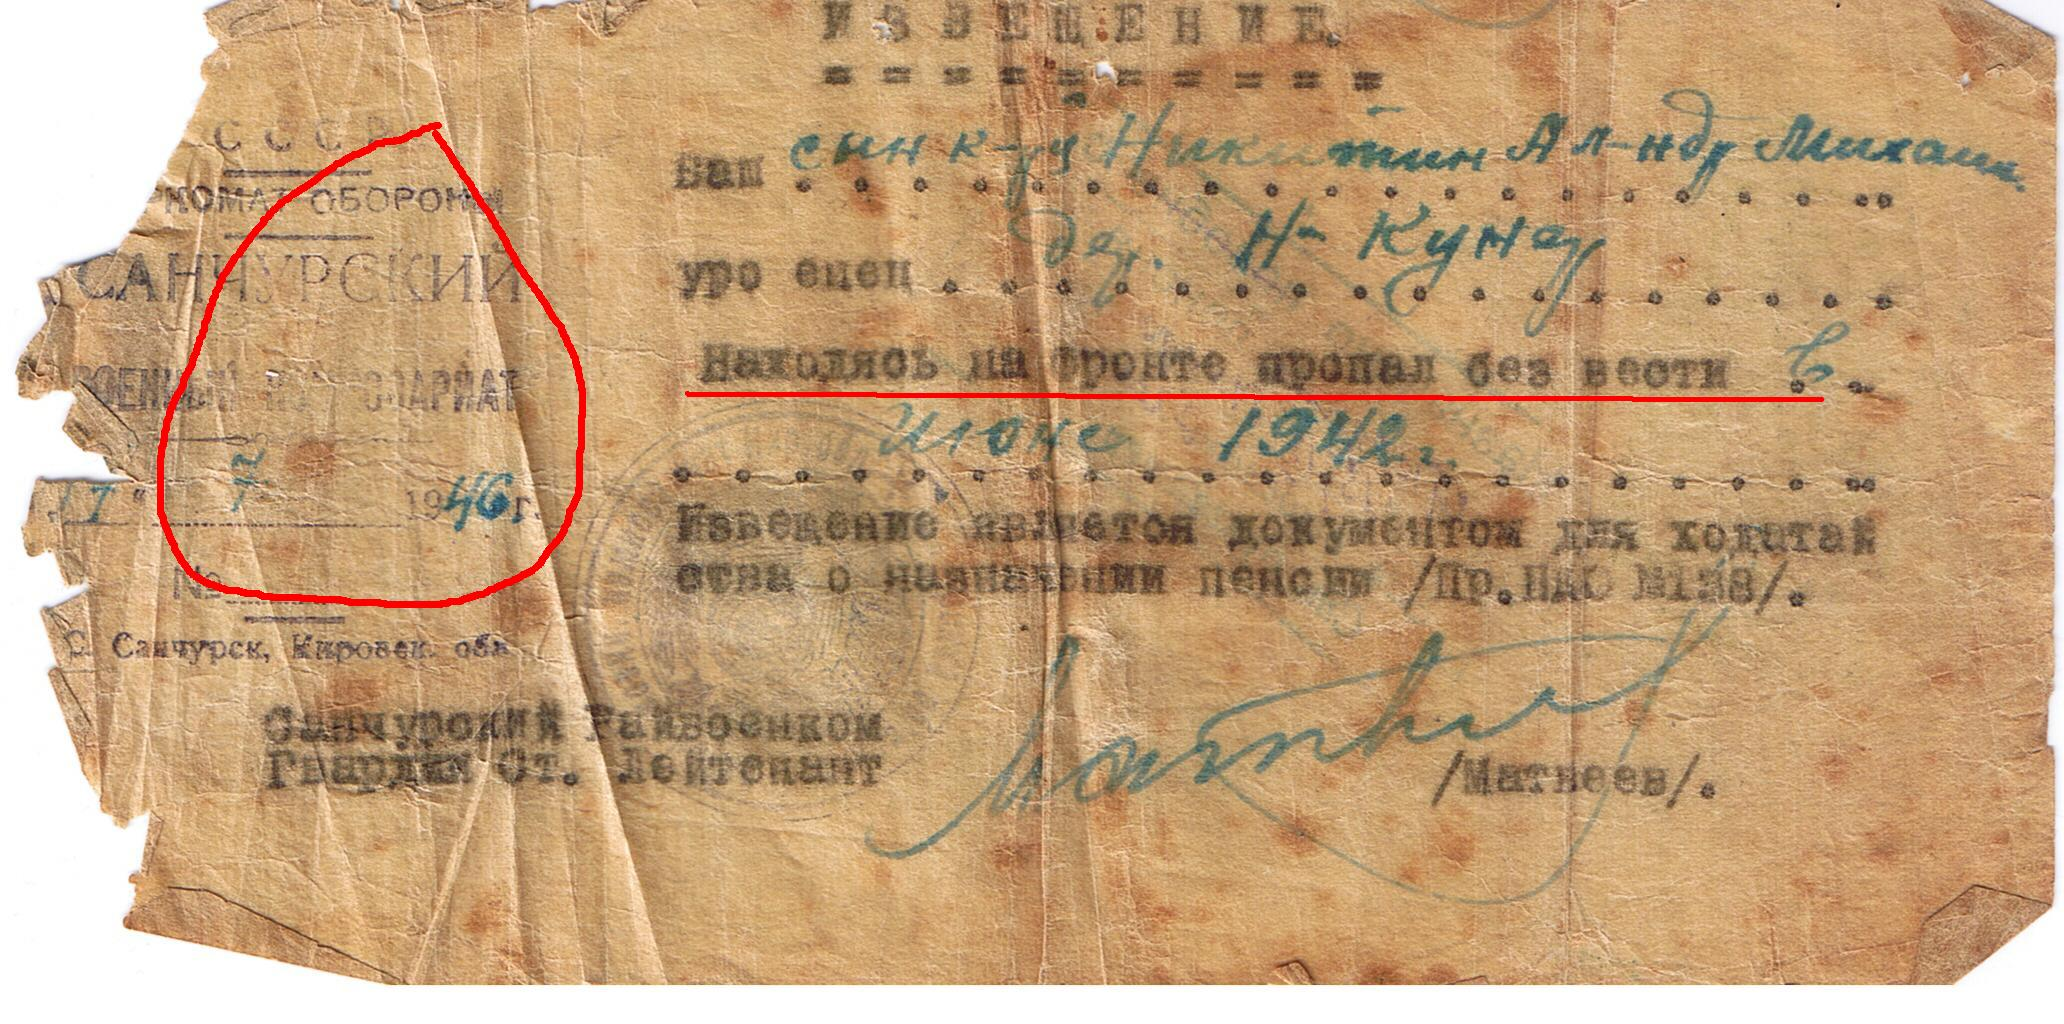 ИЗВЕЩЕНИЕ
СССР
РКОМАТ ОБОРОНЫ
САНЧУРСКИЙ
ВОЕННЫЙ КОМИССАРИАТ
17 " 7 1946 г.
№
С. Санчурск, Кировск. обл
Ваш сын к-рц Никитин Ал-ндр Михаил.
уроженец дер. Н- Кунер
Находясь на фронте пропал без вести в
июне 1942 г.
Извещение является документом для ходатай
ства о назначении пенсии /Пр.НКО №138/.
Санчурский Райвоенком
Гвардии Ст. Лейтенант
/Матвеев/.